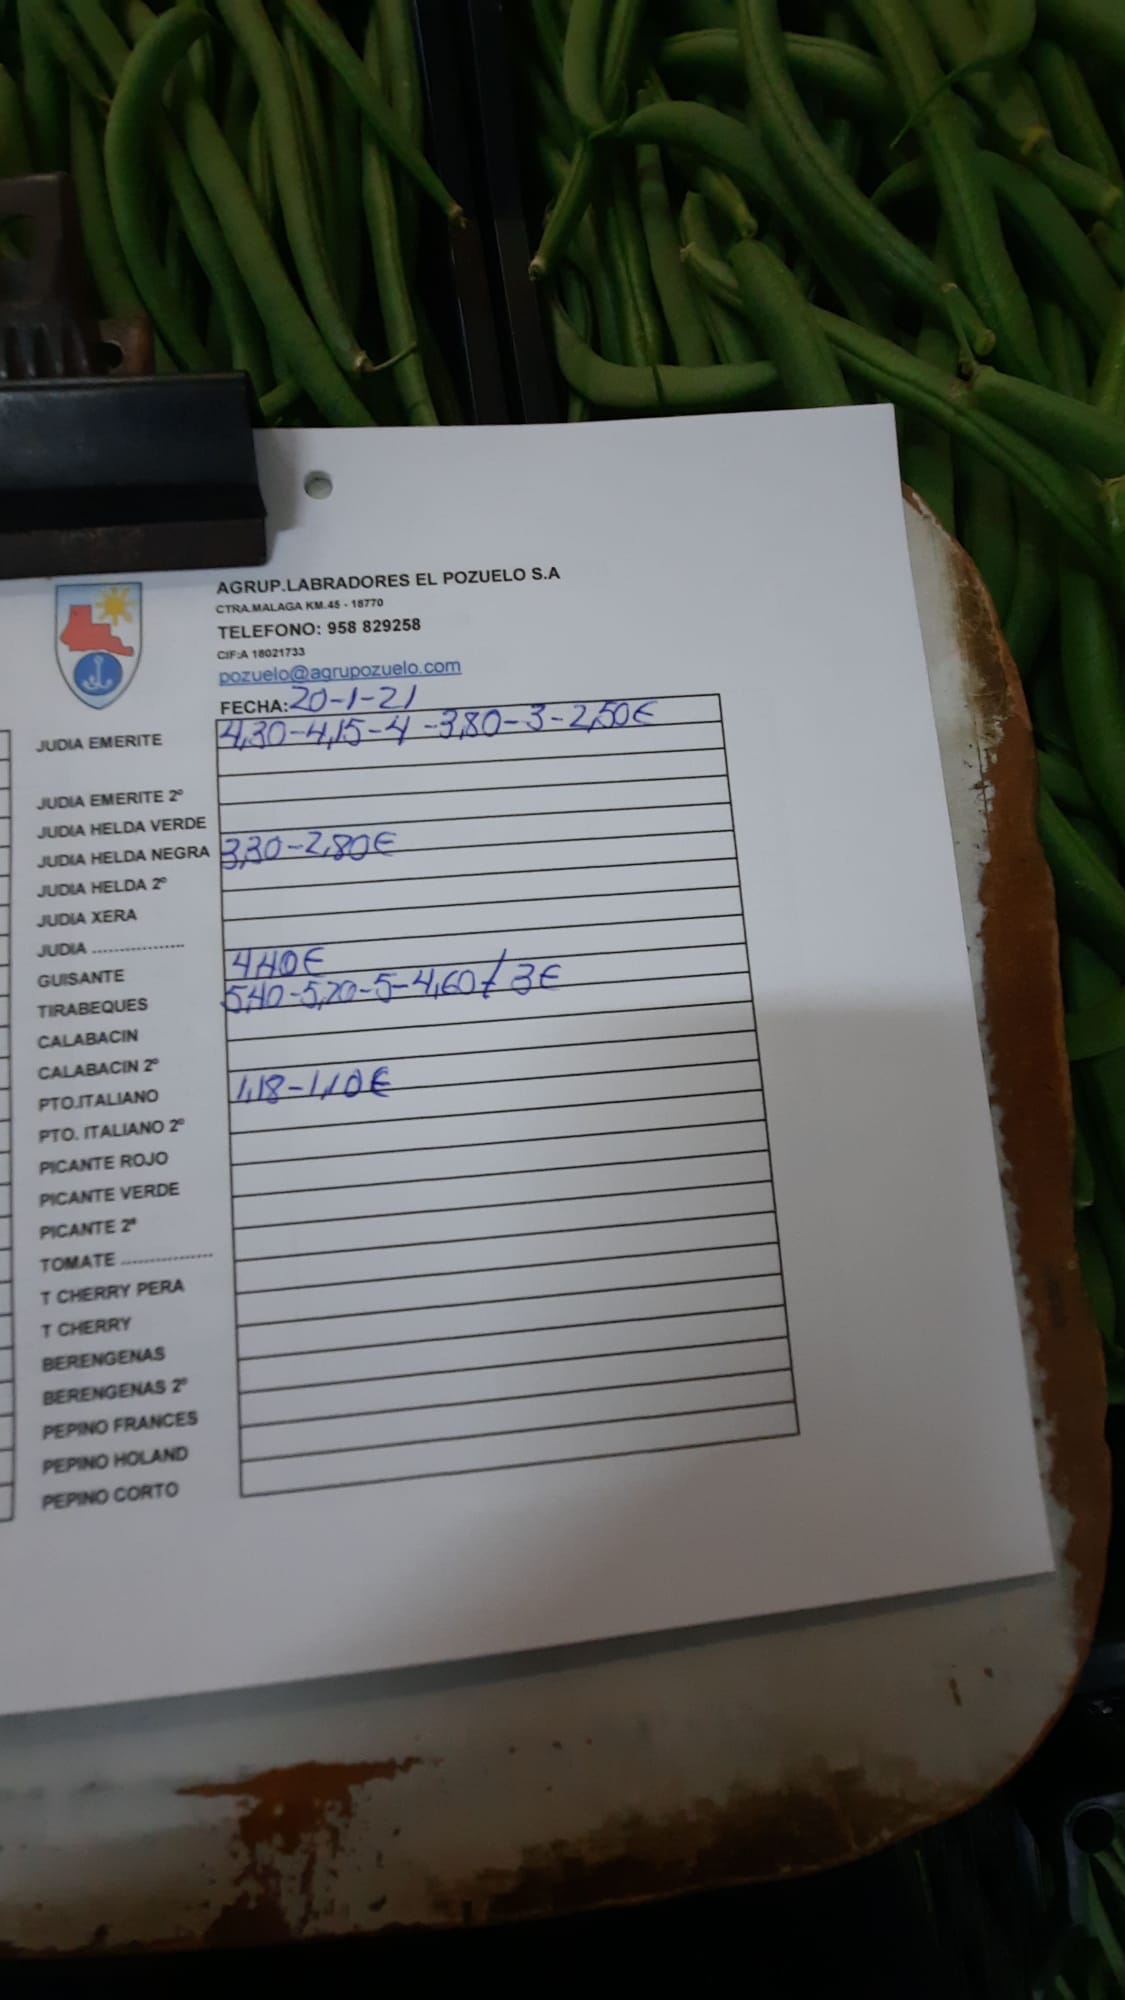 AGRUP.LABRADORES EL POZUELO S.A
CTRA.MALAGA KM.45 - 18770
TELEFONO: 958 829258
CIF:A 18021733
pozuelo@agrupozuelo.com
FECHA: 20-1-21
JUDIA EMERITE 4,30-4,15-4-3,80-3-2,50€
JUDIA EMERITE 2º
JUDIA HELDA VERDE
JUDIA HELDA NEGRA 3,30-2,80€
JUDIA HELDA 2º
JUDIA XERA
JUDIA .................
GUISANTE 4,40€
TIRABEQUES 5,40-5,20-5-4,60/3€
CALABACIN
CALABACIN 2º
PTO.ITALIANO 1,18-1,10€
PTO. ITALIANO 2º
PICANTE ROJO
PICANTE VERDE
PICANTE 2ª
TOMATE .................
T CHERRY PERA
T CHERRY
BERENGENAS
BERENGENAS 2º
PEPINO FRANCES
PEPINO HOLAND
PEPINO CORTO